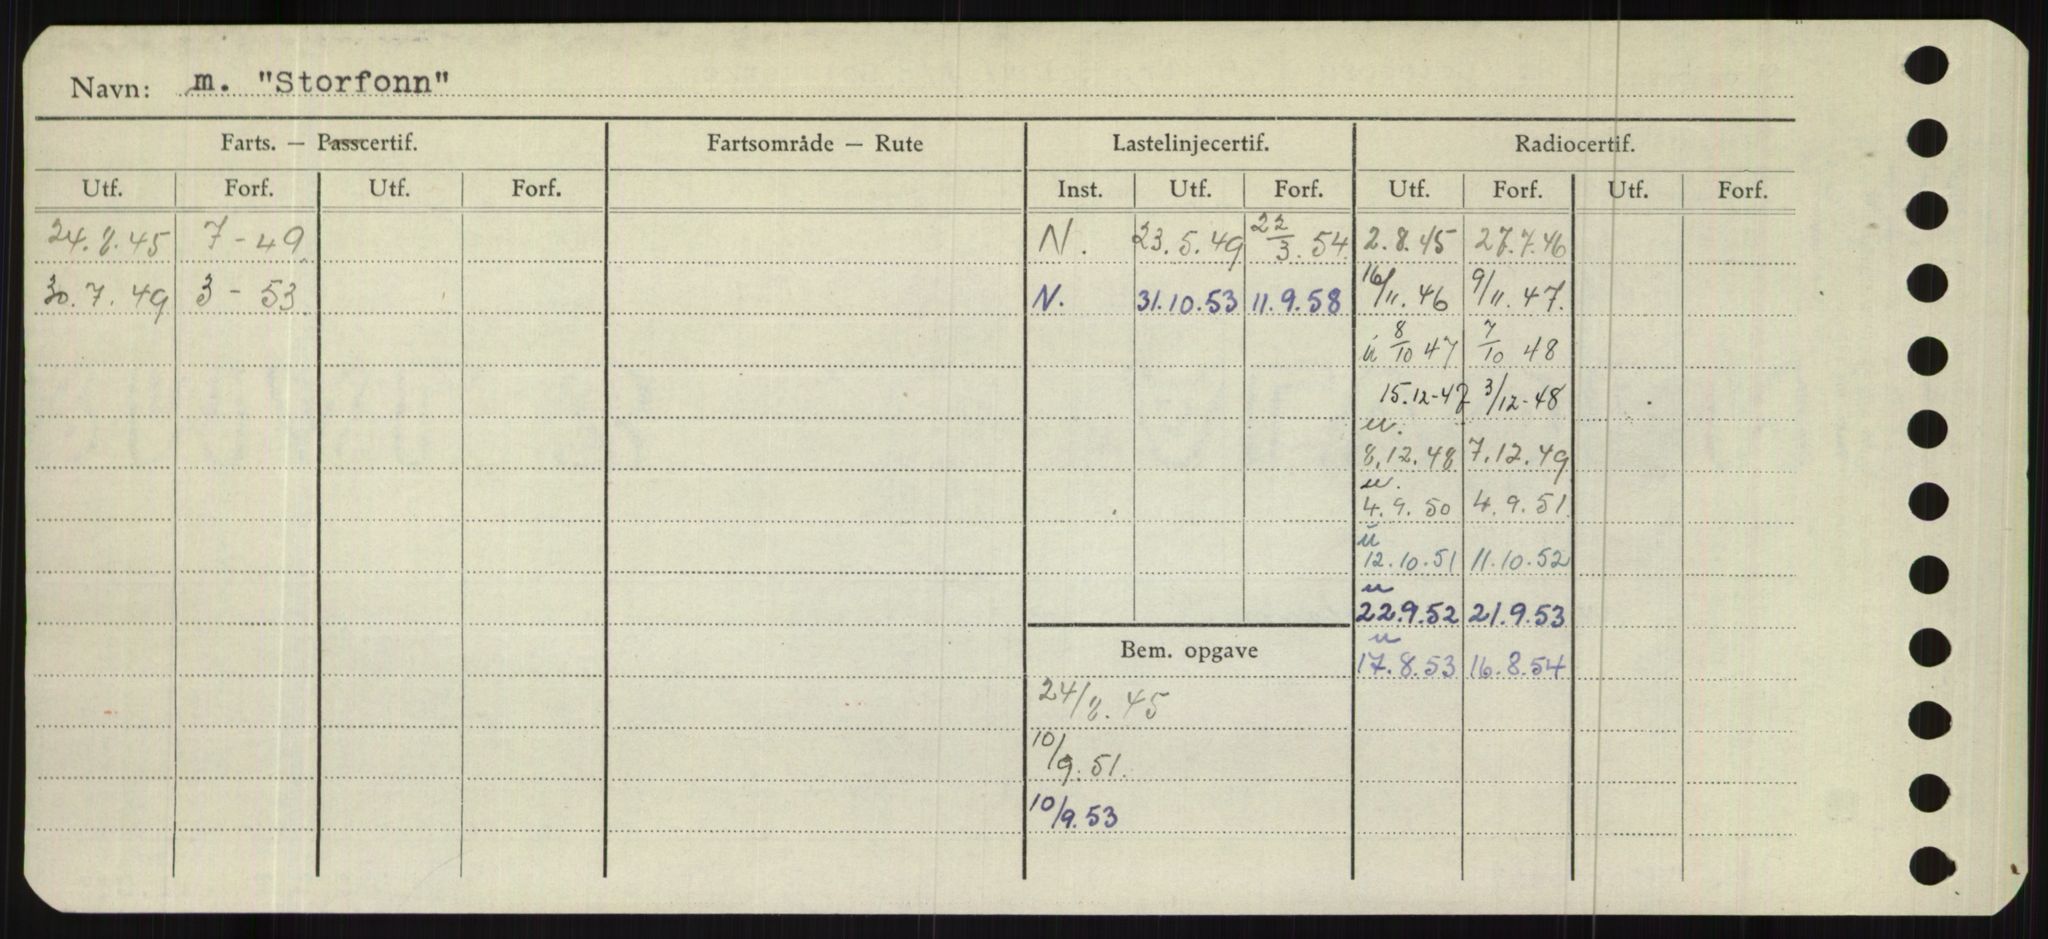 Navn: m. "Storfonn"
Farts. — Passcertif. Fartsområde — Rute Lastelinjecertif. Radiocertif.
Utf. Forf. Utf. Forf. Inst. Utf. Forf. Utf. Forf. Utf. Forf.
24.8.45 7-49 N. 23.5.49 22/3.54 2.8.45 27.7.46
30.7.49 3-53 N. 31.10.53 11.9.58 16/11.46 9/11.47.
u 8/10 47 7/10 48
15.12-47 3/12-48
u.
8.12.48 7.12.49
u.
4.9.50 4.9.51
u
12.10.51 11.10.52
u
22.9.52 21.9.53
u
Bem. opgave 17.8.53 16.8.54
24/8.45
10/9.51.
10/9.53